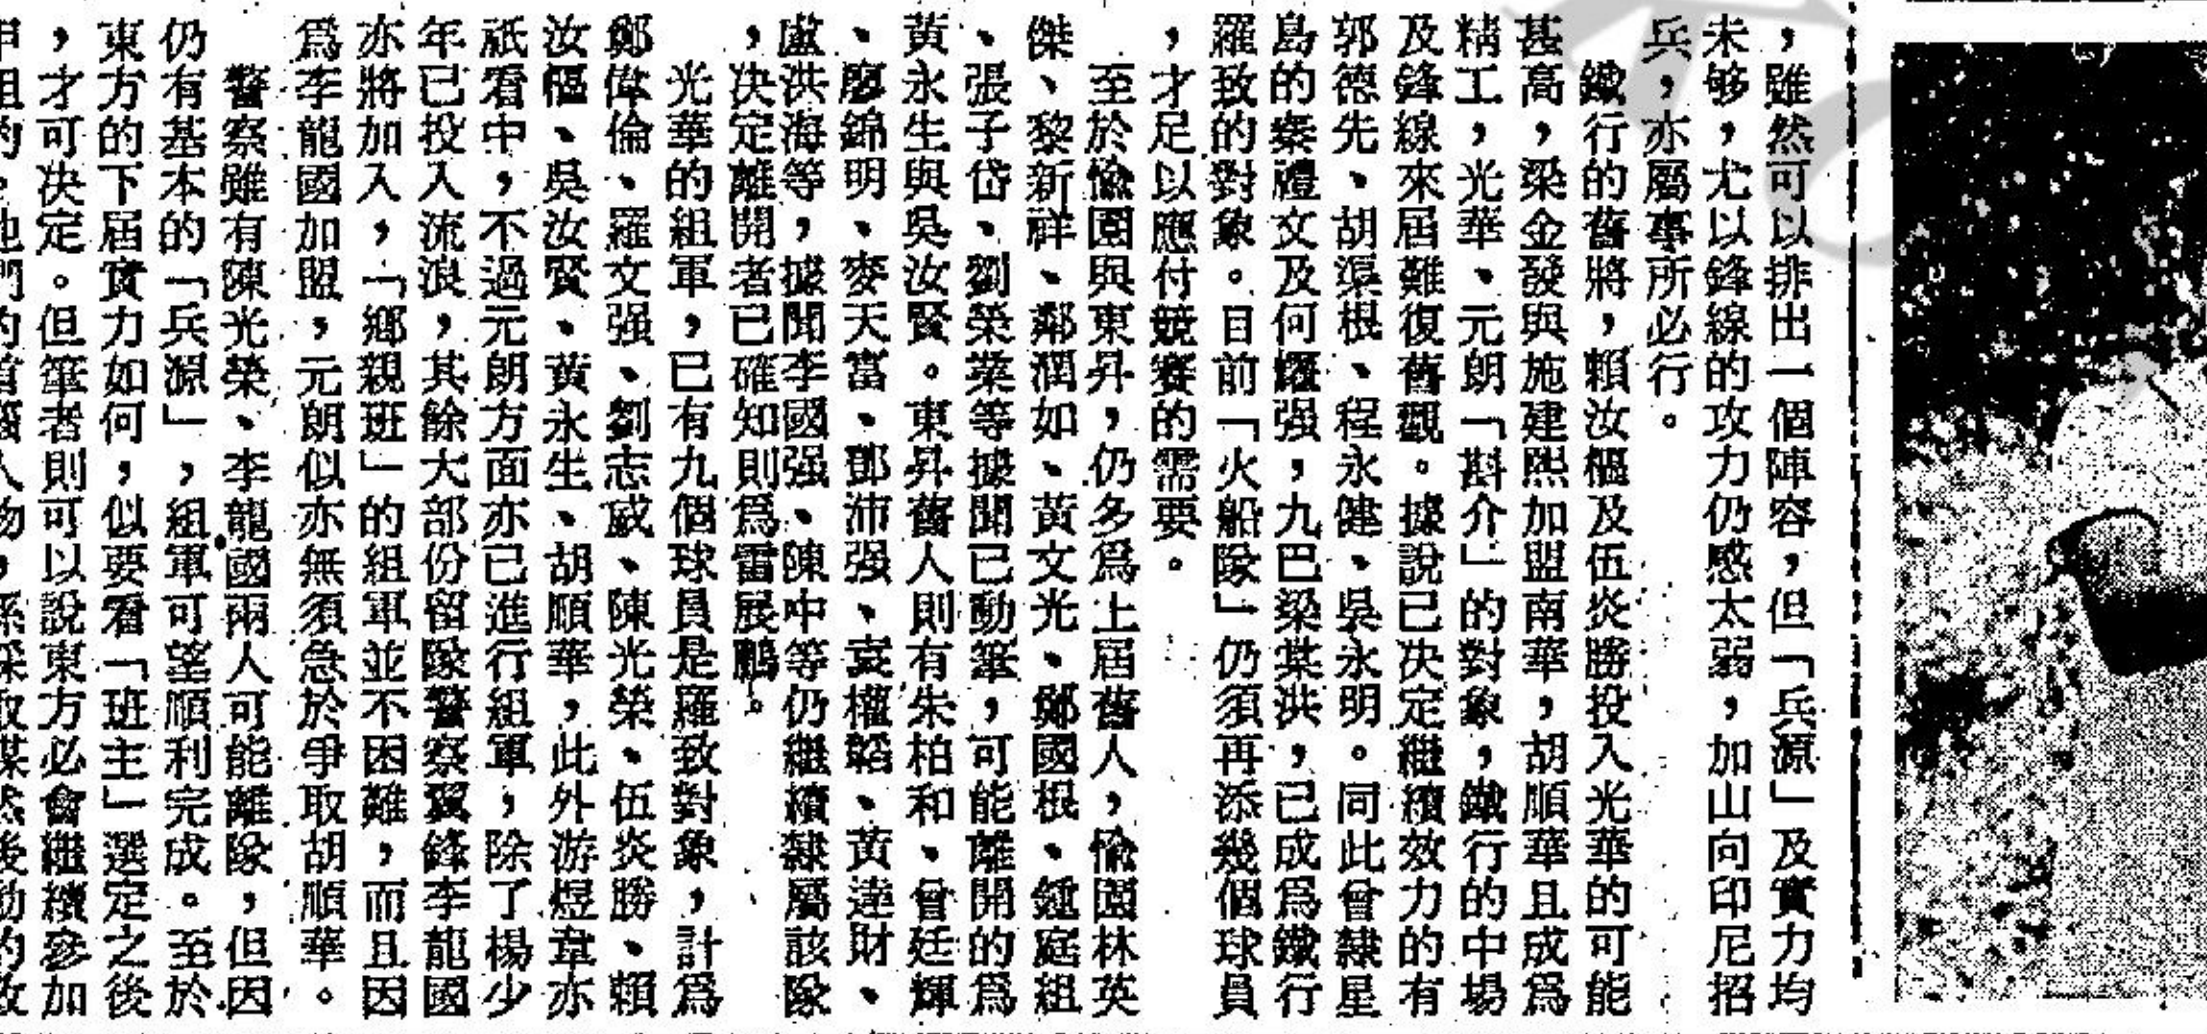 ，雖然可以排出一個陣容，但「兵源」及實力均
未够，尤以鋒線的攻力仍感太弱，加山向印尼招
兵，亦屬事所必行。
鐵行的舊將，賴汝樞及伍炎勝投入光華的可能
甚高，梁金發與施建熙加盟南華，胡順華且成為
精工，光華、元朗「斟介」的對象，鐵行的中場
及鋒線來屆難復舊觀。據說已決定繼續效力的有
郭德先、胡渠根、程永健、吳永明。同此曾隸星
島的秦禮文及何耀强，九巴梁棠洪，已成爲鐵行
羅致的對象。目前「火船隊」仍須再添幾個球員
，才足以應付競賽的需要。
至於愉園與東昇，仍多爲上屆舊人，愉園林英
傑、黎新祥、鄰潤如、黃文光、鄭國根、鍾庭組
、張子岱、劉榮業等據聞已動筆，可能離開的爲
黃永生與吳汝賢。東昇舊人則有朱柏和、曾廷輝
、廖錦明、麥天富、鄧沛强、袁權韜、黃達財、
盧洪海等，據聞李國强、陳中等仍繼續隸屬該隊
，決定離開者已確知則爲雷展鵬。
光華的組軍，已有九個球員是羅致對象，計爲
鄭偉倫、羅文强、劉志威、陳光榮、伍炎勝、賴
汝樞、吳汝賢、黃永生、胡順華，此外游煜韋亦
祇看中，不過元朗方面亦已進行組軍，除了楊少
年已投入流浪，其餘大部份留隊警察翼鋒李龍國
亦將加入，「鄉親班」的組軍並不困難，而且因
爲李龍國加盟，元朗似亦無須急於爭取胡順華。
警察雖有陳光榮、李龍國兩人可能離隊，但因
仍有基本的「兵源」，組軍可望順利完成。至於
東方的下屆實力如何，似要看「班主」選定之後
，才可決定。但筆者則可以說東方必會繼續參加